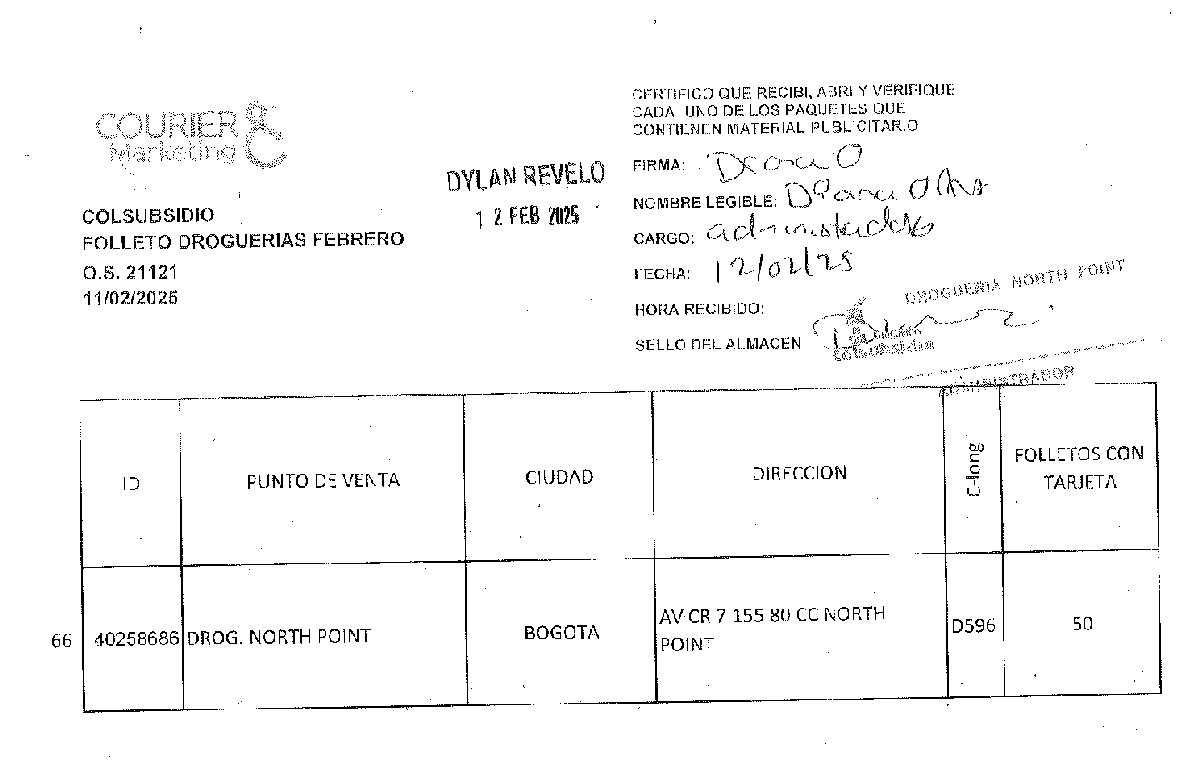 COURIER
Marketing
COLSUBSIDIO
FOLLETO DROGUERIAS FEBRERO
O.S. 21121
11/02/2025
DYLAN REVELO
12 FEB 2025
CERTIFICO QUE RECIBI, ABRI Y VERIFIQUE
CADA UNO DE LOS PAQUETES QUE
CONTIENEN MATERIAL PUBLICITARIO
FIRMA:
NOMBRE LEGIBLE:
CARGO:
FECHA: 12/02/25
HORA RECIBIDO:
SELLO DEL ALMACEN
DROGUERIA NORTH POINT
Colsubsidio
ADMINISTRADOR
ID PUNTO DE VENTA CIUDAD DIRECCION C-long FOLLETOS CON TARJETA
66 40258686 DROG. NORTH POINT BOGOTA AV CR 7 155 80 CC NORTH POINT D596 50